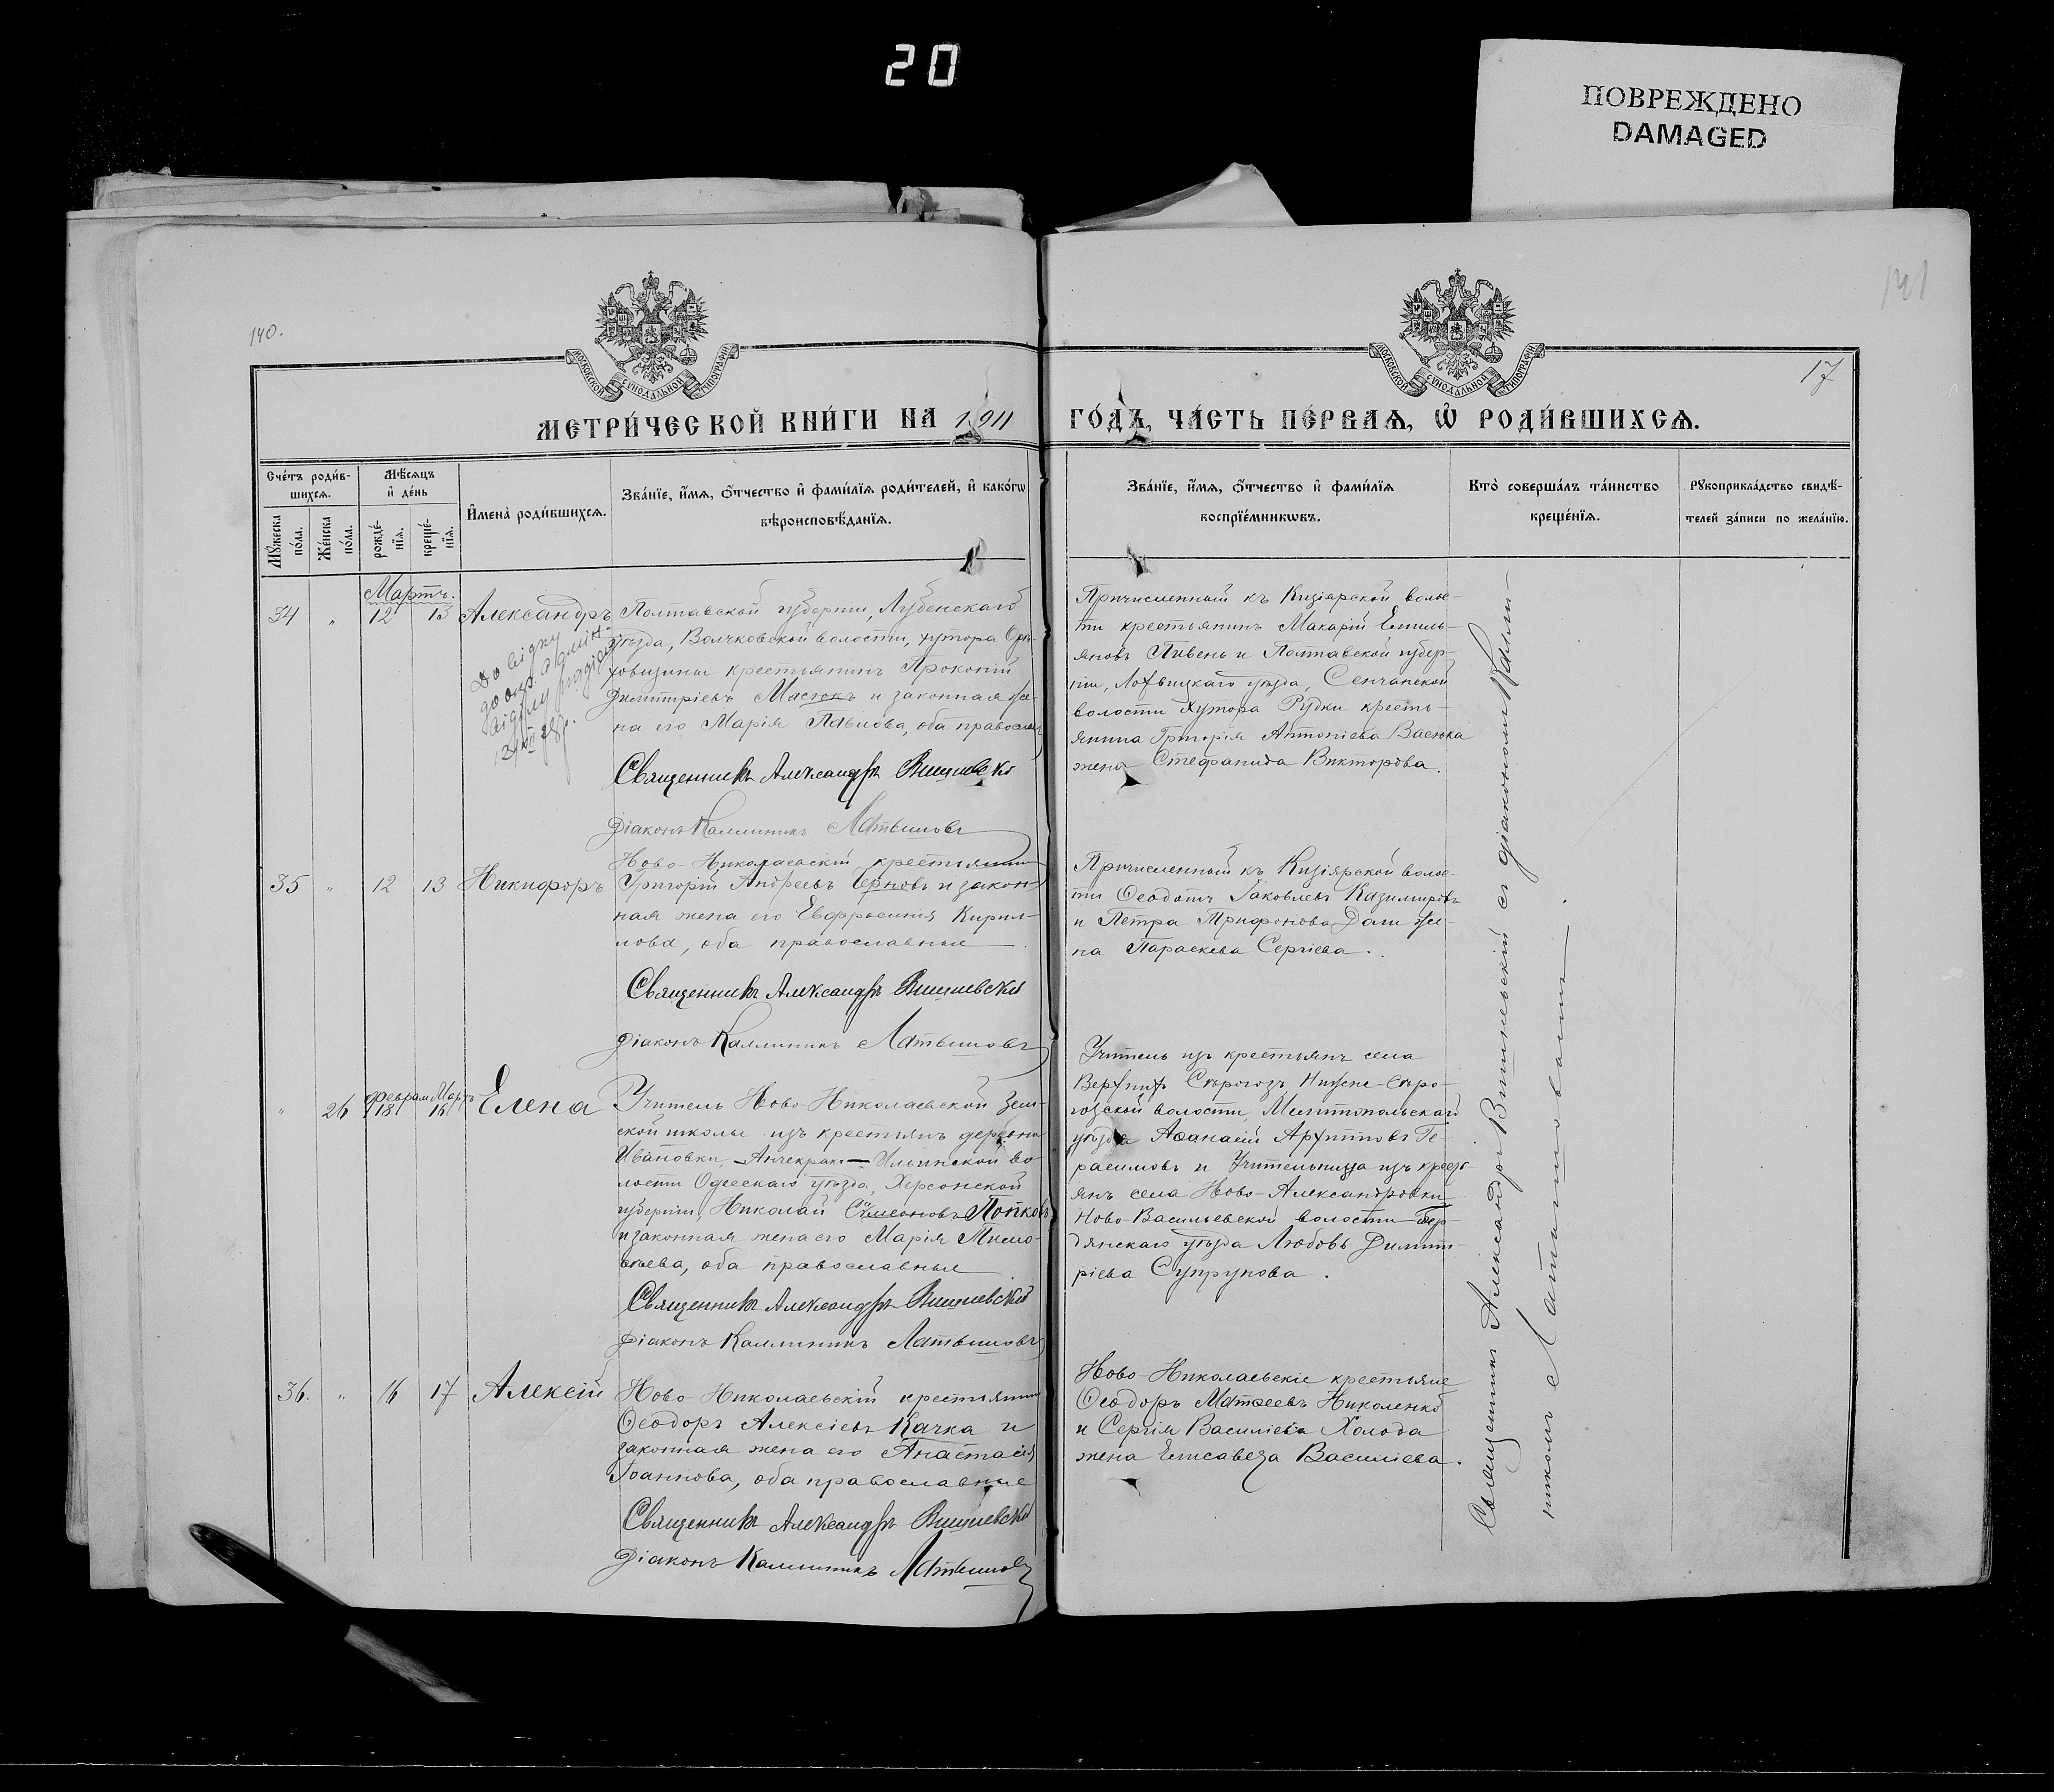 20
ПОВРЕЖДЕНО
DAMAGED
140.
141
17
МОСКОВСКОЙ СѴНОДАЛЬНОЙ ТИПОГРАФІИ
МОСКОВСКОЙ СѴНОДАЛЬНОЙ ТИПОГРАФІИ
МЕТРИ́ЧЕСКОЙ КНИ́ГИ НА 1911
ГО́ДЪ, ЧА́СТЬ ПЕ́РВАѦ, Ѽ РОДИ́ВШИХСѦ.
Сче́тъ роди́в-
шихсѧ.
Мѣ́сѧцъ
и҆ де́нь
Мꙋ́жеска
по́ла.
Же́нска
по́ла.
рожде́-
нїѧ.
креще́-
нїѧ.
И҆мена̀ роди́вшихсѧ.
Зва́нїе, и҆́мѧ, ѻ҆́тчество и҆ фами́лїѧ роди́телей, и҆ како́гѡ
вѣроисповѣ́данїѧ.
Зва́нїе, и҆́мѧ, ѻ҆́тчество и҆ фами́лїѧ
воспрїе́мникѡвъ.
Кто̀ соверша́лъ та́инство
креще́нїѧ.
Рꙋкоприкла́дство свидѣ́-
телей за́писи по жела́нїю.
Мартъ.
34 " 12 13 Александръ
Полтавской губерніи, Лубенскаго
уѣзда, Волчковской волости, хутора Орѣ-
ховщины крестьянинъ Прокопій
Димитріевъ Масюкъ и законная же-
на его Марія Павлова, оба православн
Священникъ Александръ Вишневскій
Діаконъ Каллиникъ Латышовъ
Причисленный къ Кизіярской волос-
ти крестьянинъ Макарій Емиль-
яновъ Пивень и Полтавской губер-
ніи, Лохвицкаго уѣзда, Сенчанской
волости хутора Рудки кресть-
янина Григорія Антоніева Васюка
жена Стефанида Викторова.
35 " 12 13 Никифоръ
Ново-Николаевскій крестьянинъ
Григорій Андреевъ Черновъ и закон-
ная жена его Евфросинія Кирил-
лова, оба православные
Священникъ Александръ Вишневскій
Діаконъ Каллиникъ Латышовъ
Причисленный къ Кизіярской волос-
ти Ѳеодотъ Іаковлевъ Казимировъ
и Петра Трифонова Дали же-
на Параскева Сергіева.
Феврал Мартъ
" 26 18 16 Елена
Учитель Ново-Николаевской зем-
ской школы изъ крестьянъ деревни
Ивановки, Анчекрак-Ильинской во-
лости Одесскаго уѣзда, Херсонской
губерніи, Николай Симеоновъ Попковъ
и законная жена его Марія Тимо-
ѳеева, оба православные
Священникъ Александръ Вишневскій
Діаконъ Каллиникъ Латышовъ
Учитель изъ крестьянъ села
Верхнихъ Сѣрогозъ Нижне-Сѣро-
гозской волости Мелитопольскаго
уѣзда Аѳанасій Архиповъ Ге-
расимовъ и Учительница изъ крест-
янъ села Ново-Александровки
Ново-Васильевской волости Бер-
дянскаго уѣзда Любовь Димит-
ріева Супрунова.
36. " 16 17 Алексій
Ново-Николаевскій крестьянинъ
Ѳеодоръ Алексіевъ Качка и
законная жена его Анастасія
Іоаннова, оба православные
Священникъ Александръ Вишневскій
Діаконъ Каллиникъ Латышовъ
Ново-Николаевскіе крестьяне
Ѳеодоръ Матѳеевъ Николенко
и Сергія Василіева Холода
жена Елисавета Василіева.
Священникъ Александръ Вишневскій съ діакономъ Калли-
никомъ Латышовымъ